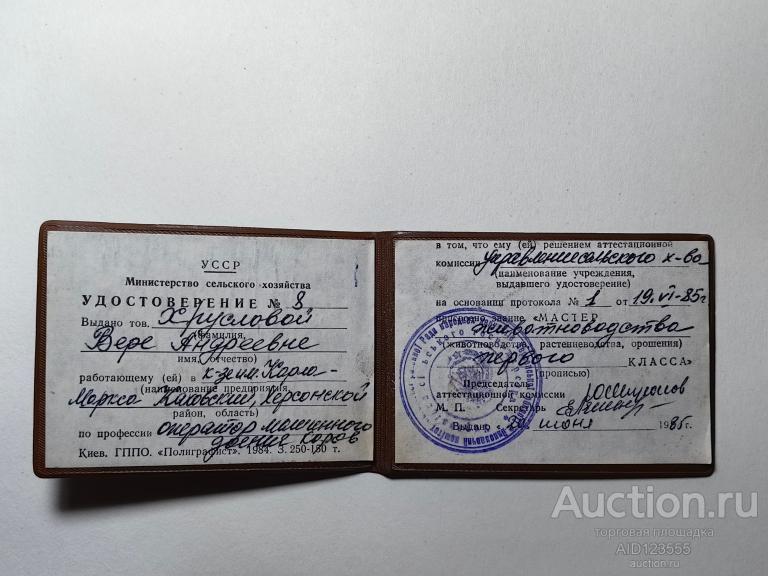 УССР
Министерство сельского хозяйства
УДОСТОВЕРЕНИЕ № 8
Выдано тов. Хрусловой
(фамилия,
Вере Андреевне
имя, отчество)
работающему (ей) в к-з им. Карла-
(наименование предприятия,
Маркса Каховский, Херсонской
район, область)
по профессии оператор машинного
доения коров
Киев. ГППО. «Полиграфист». 1984. З. 250-180 т.
в том, что ему (ей) решением аттестационной
комиссии управление сельского х-ва
(наименование учреждения,
выдавшего удостоверение)
на основании протокола № 1 от 19.VI-85г
присвоено звание «МАСТЕР
животноводства
(животноводства, растениеводства, орошения)
первого КЛАССА»
(прописью)
Председатель
аттестационной комиссии
М. П. Секретарь
Выдано « 20 » июня 1985г.
Auction.ru
торговая площадка
AID123555
auction.ru